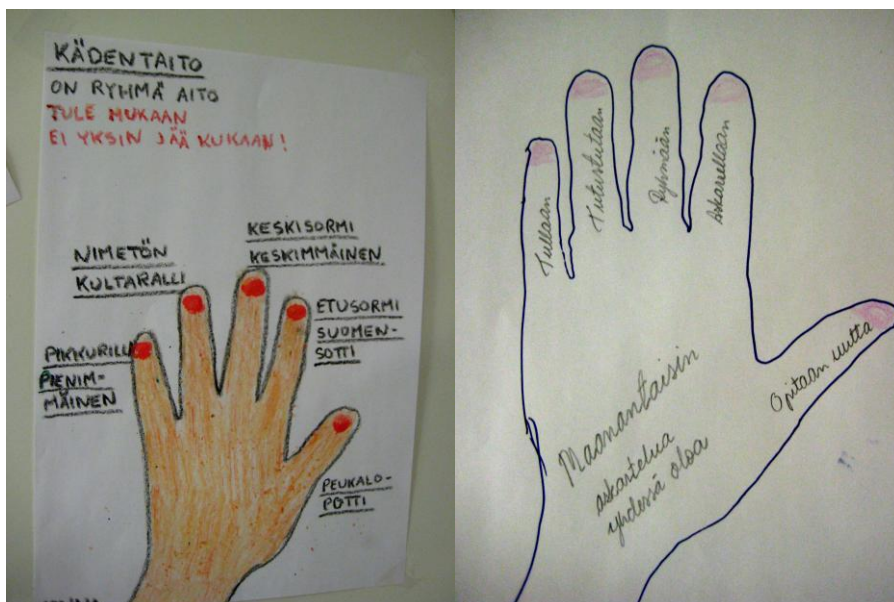 KÄDENTAITO
ON RYHMÄ AITO
TULE MUKAAN
EI YKSIN JÄÄ KUKAAN!
KESKISORMI
KESKIMMÄINEN
NIMETÖN
KULTARALLI
ETUSORMI
SUOMEN-
SOTTI
PIKKURILLI
PIENIM-
MÄINEN
PEUKALO-
POTTI
Tullaan
Tutustutaan
Ryhmään
Askarrellaan
Opitaan uutta
Maanantaisin
askartelua
yhdessä oloa